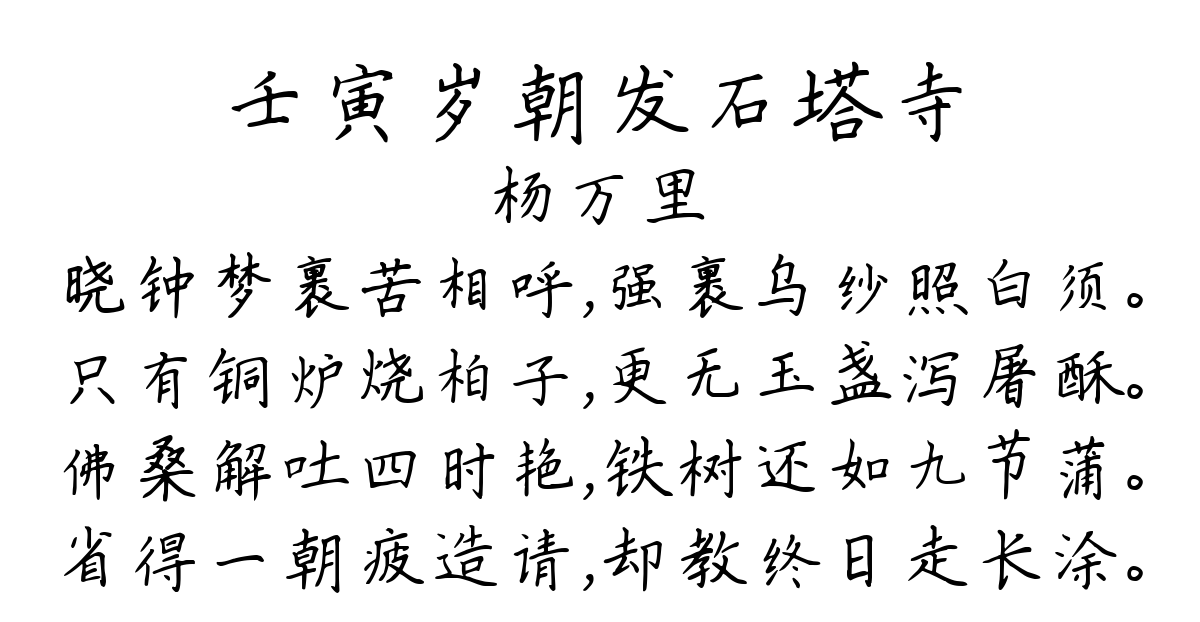 壬寅岁朝发石塔寺
杨万里
晓钟梦裹苦相呼,强裹乌纱照白须。
只有铜炉烧柏子,更无玉盏泻屠酥。
佛桑解吐四时艳,铁树还如九节蒲。
省得一朝疲造请,却教终日走长涂。